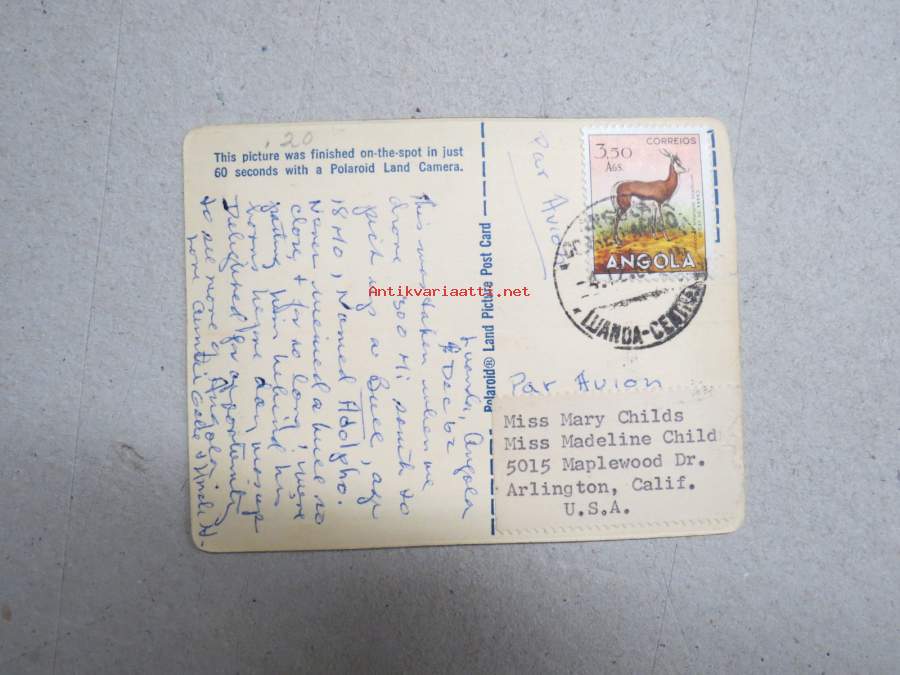 .20
This picture was finished on-the-spot in just
60 seconds with a Polaroid Land Camera.
Luanda, Angola
8 Dec 62
This was taken when we
drove 300 Mi south to
pick up a Bull, age
18 Mo, Named Adolpho.
Never viewed a bull so
close, & for so long; were
patting him behind his
horns before day was up
Delighted for opportunity
to see more of Angola.
Love Auntie
Polaroid® Land Picture Post Card
Par Avion
CORREIOS
3,50
Ags.
ANGOLA
LUANDA-CENTRAL
Par Avion
Miss Mary Childs
Miss Madeline Child
5015 Maplewood Dr.
Arlington, Calif.
U.S.A.
Antikvariaatti.net